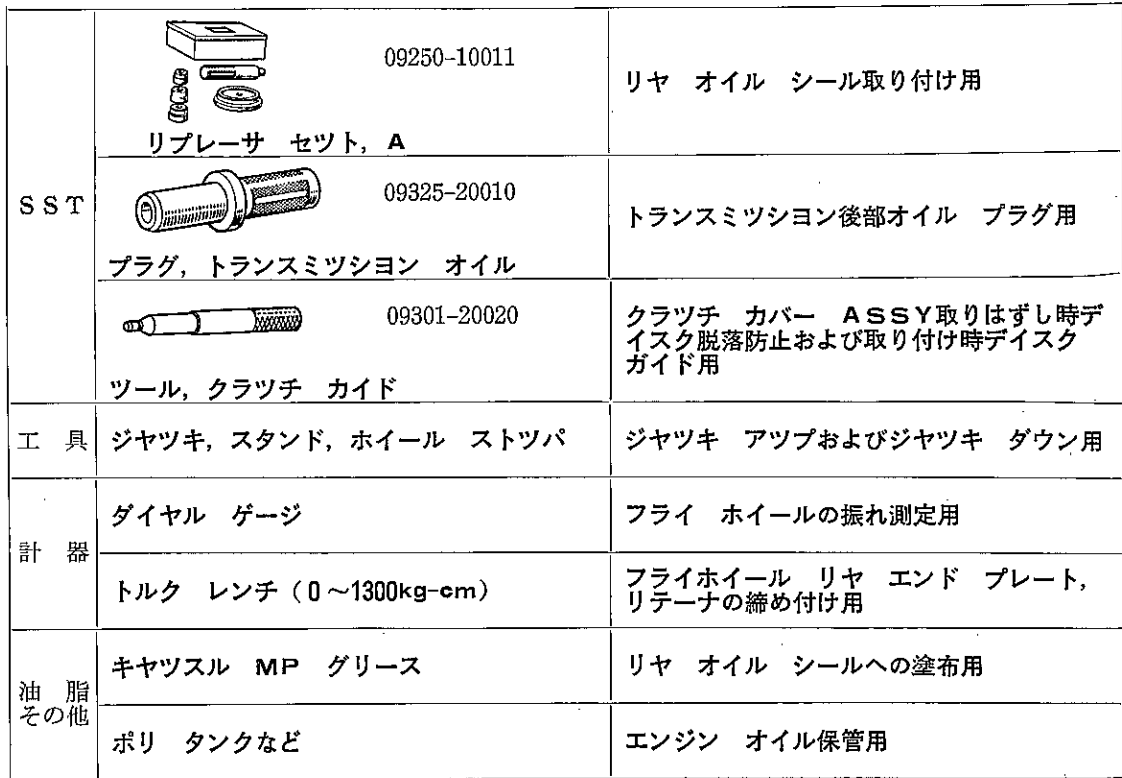 SST
09250-10011
リプレーサ セツト, A
リヤ オイル シール取り付け用
09325-20010
プラグ, トランスミツシヨン オイル
トランスミツシヨン後部オイル プラグ用
09301-20020
ツール, クラツチ カイド
クラツチ カバー ASSY取りはずし時デ
イスク脱落防止および取り付け時デイスク
ガイド用
工 具
ジヤツキ, スタンド, ホイール ストツパ
ジヤツキ アツプおよびジヤツキ ダウン用
計 器
ダイヤル ゲージ
フライ ホイールの振れ測定用
トルク レンチ (0～1300kg-cm)
フライホイール リヤ エンド プレート,
リテーナの締め付け用
油 脂
その他
キヤツスル MP グリース
リヤ オイル シールへの塗布用
ポリ タンクなど
エンジン オイル保管用